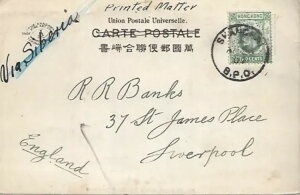 Printed Matter
Via Siberia
Union Postale Universelle.
CARTE POSTALE
萬國郵便聯合端書
HONG KONG
CENTS
B.P.O.
R R Banks
37 St James Place
Liverpool
England